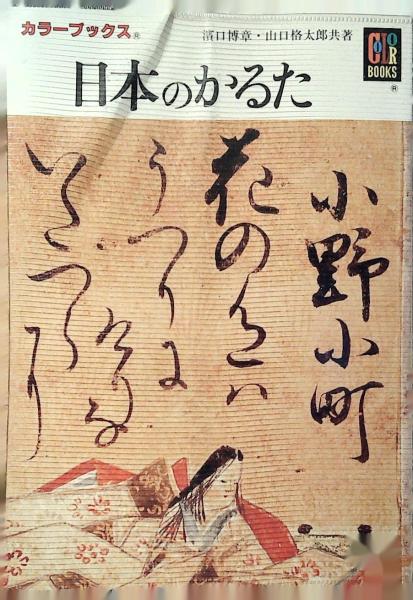 カラーブックス®
濱口博章・山口格太郎共著
COLOR
BOOKS
®
日本のかるた
小野小町
花の色は
うつりに
けりな
いたつらに